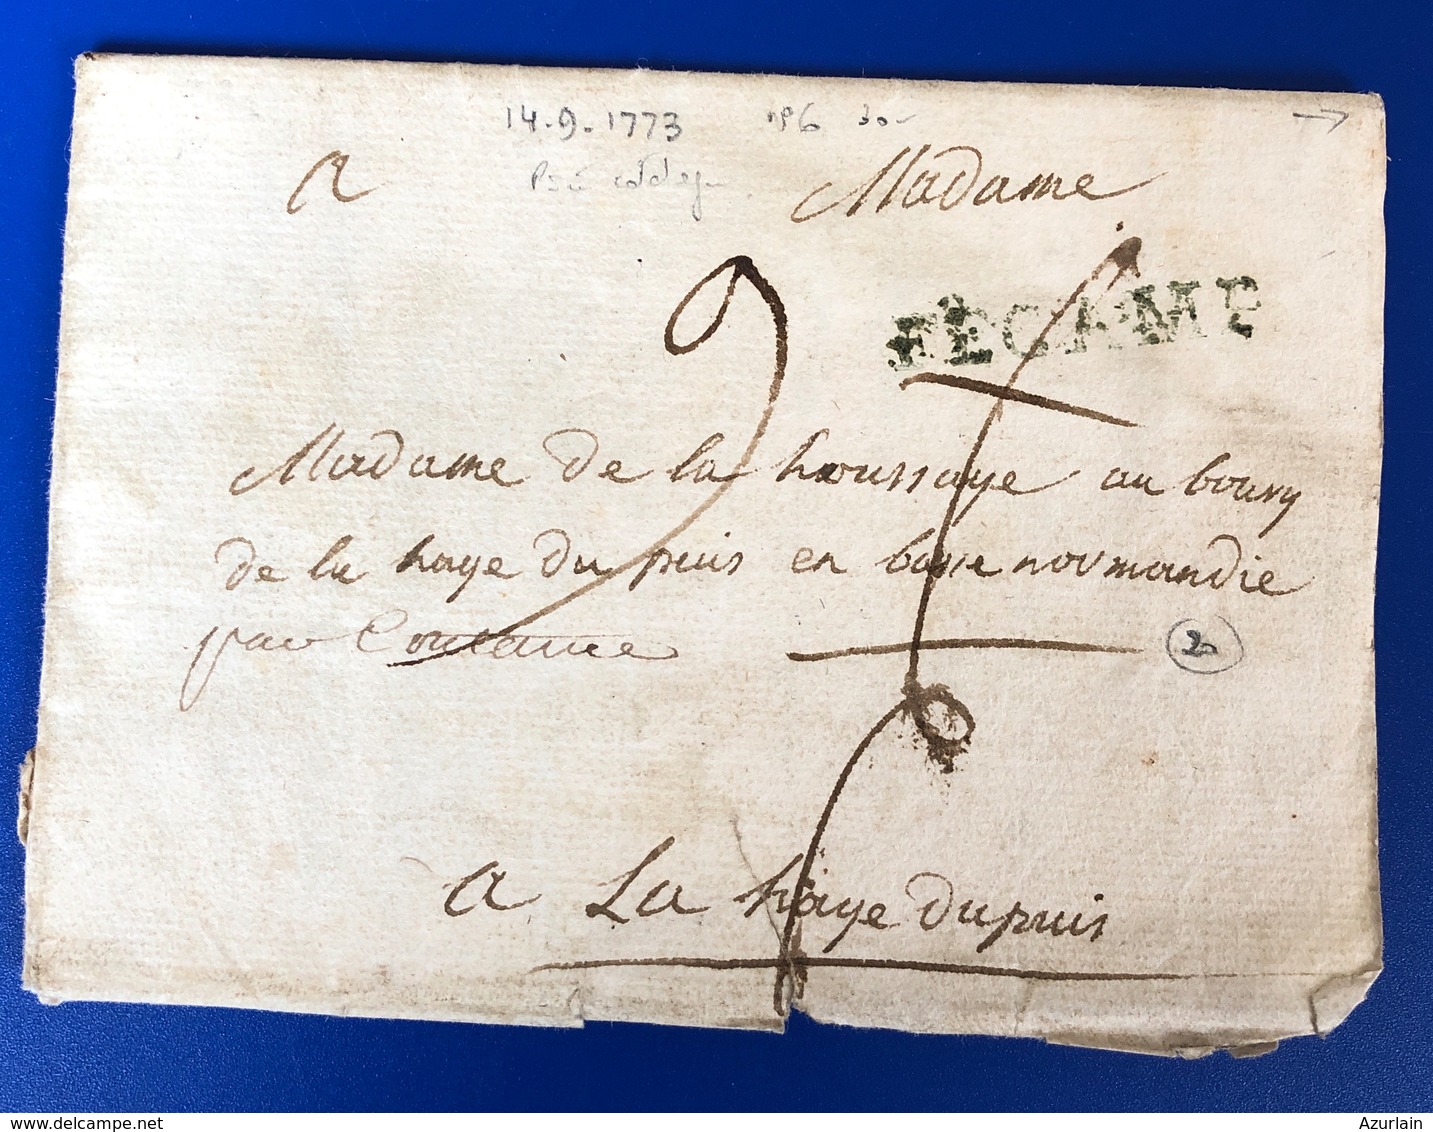 14-9-1773 n°6 30-
A Madame
FÉCAMP
9
Madame de la houssaye au bourg
de la haye du puis en basse normandie
par Coutance
2
a La haye du puis
delcampe.net
Azurlain